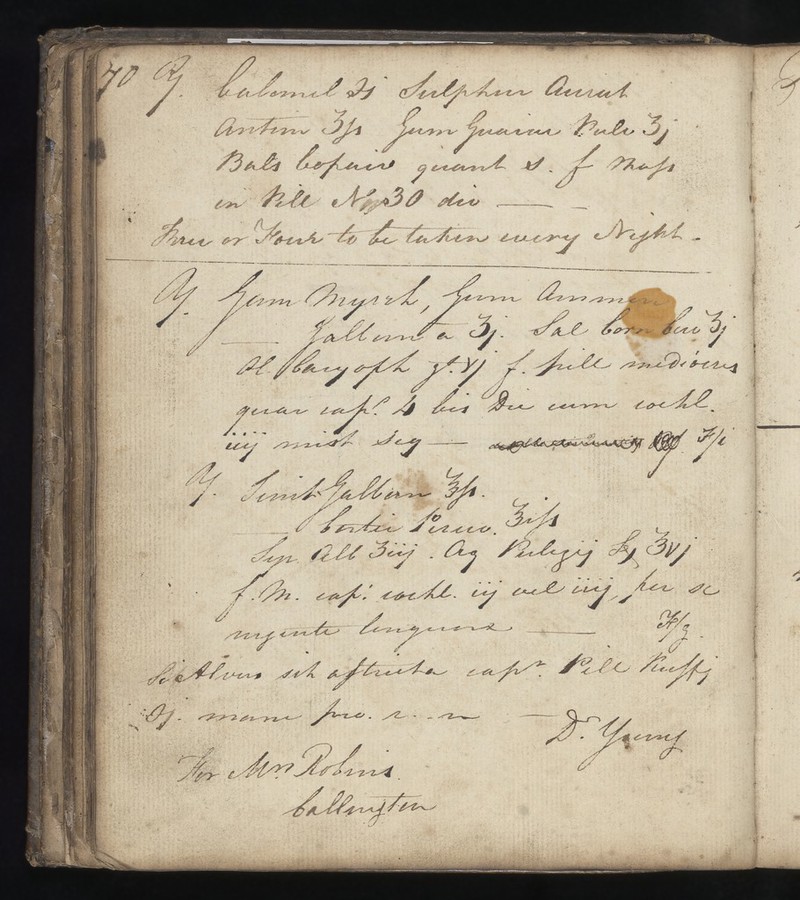 70 ℞. Calomel ℈j Sulphur Aurat
Antim ʒſs Gum Guaiac Pulv ʒj
Bals Copaiv quant s. f Maſs
in Pill No 30 div —
Three or Four to be taken every Night -
℞. Gum Myrrh, Gum Ammon
— Galban a ʒj. Sal Corn Cerv ʒj
Ol Caryoph gt. vj f. pill mediocres
quar capt. 4 bis Die cum cochl.
iiij mist seq —
℞. Tinct Galban ʒſs.
— Cortic Peruv. ʒiſs
Syr Alb ʒiij. Aq Pulegij ʒvj
f. M. capt. cochl. iij vel iiij per se
urgente languore —
Si Alvus sit aſtricta capt. Pill Ruffj
℈j. mane pro. r. n —
Dr. Young
For Mrs Robins.
Callington